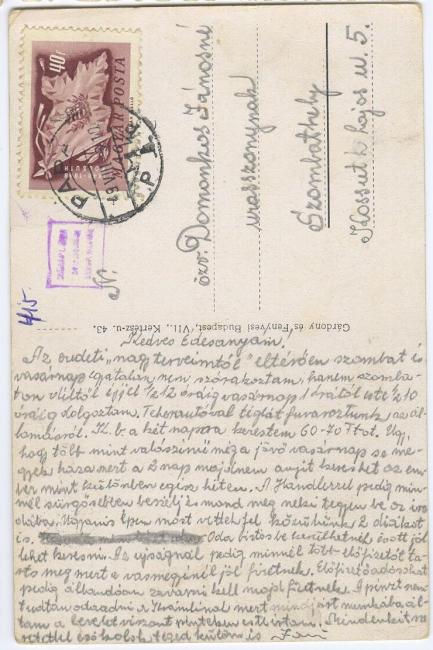 40f
MAGYAR POSTA
özv. Domonkos Jánosné
urasszonynak
Szombathely
Kossuth Lajos u. 5.
Gárdony és Fenyvesi Budapest, VII., Kertész-u. 43.
Kedves Édesanyám!
Az eredeti „nagy terveimtől" eltérően szombat és
vasárnap egyáltalán nem szórakoztam, hanem szomba-
ton éjjel 1/2 12 óráig vasárnap 1 órától este 1/2 10
óráig dolgoztam. Teherautóval téglát fuvaroztunk az ál-
lomásról. Kb. a két napra kerestem 60-70 Ft-ot. Úgy,
hogy több mint valószínű még a jövő vasárnap se me-
gyek haza mert a 2 nap majdnem annyit kereshet az em-
ber mint különben egész héten. A Handlerrel pedig min-
nél sürgősebben beszélj és mond meg neki tegyen be az iro-
dába. Ugyanis épen most vettek fel közülünk 2 diákot
is. Oda biztos be kerülhetnél és ott jól
lehet keresni. Az újságnál pedig minnél több előfizetőt
mert a vasmegyénél jól fizetnek. Előfizetőadósokat
pedig állandóan zavarni kell majd fizetnek. A
tudtam odaadni a mert mindjárt munkába ál-
tam a levelet viszont Mindenkit so-
rotokkal csókolok, téged külön is Jani